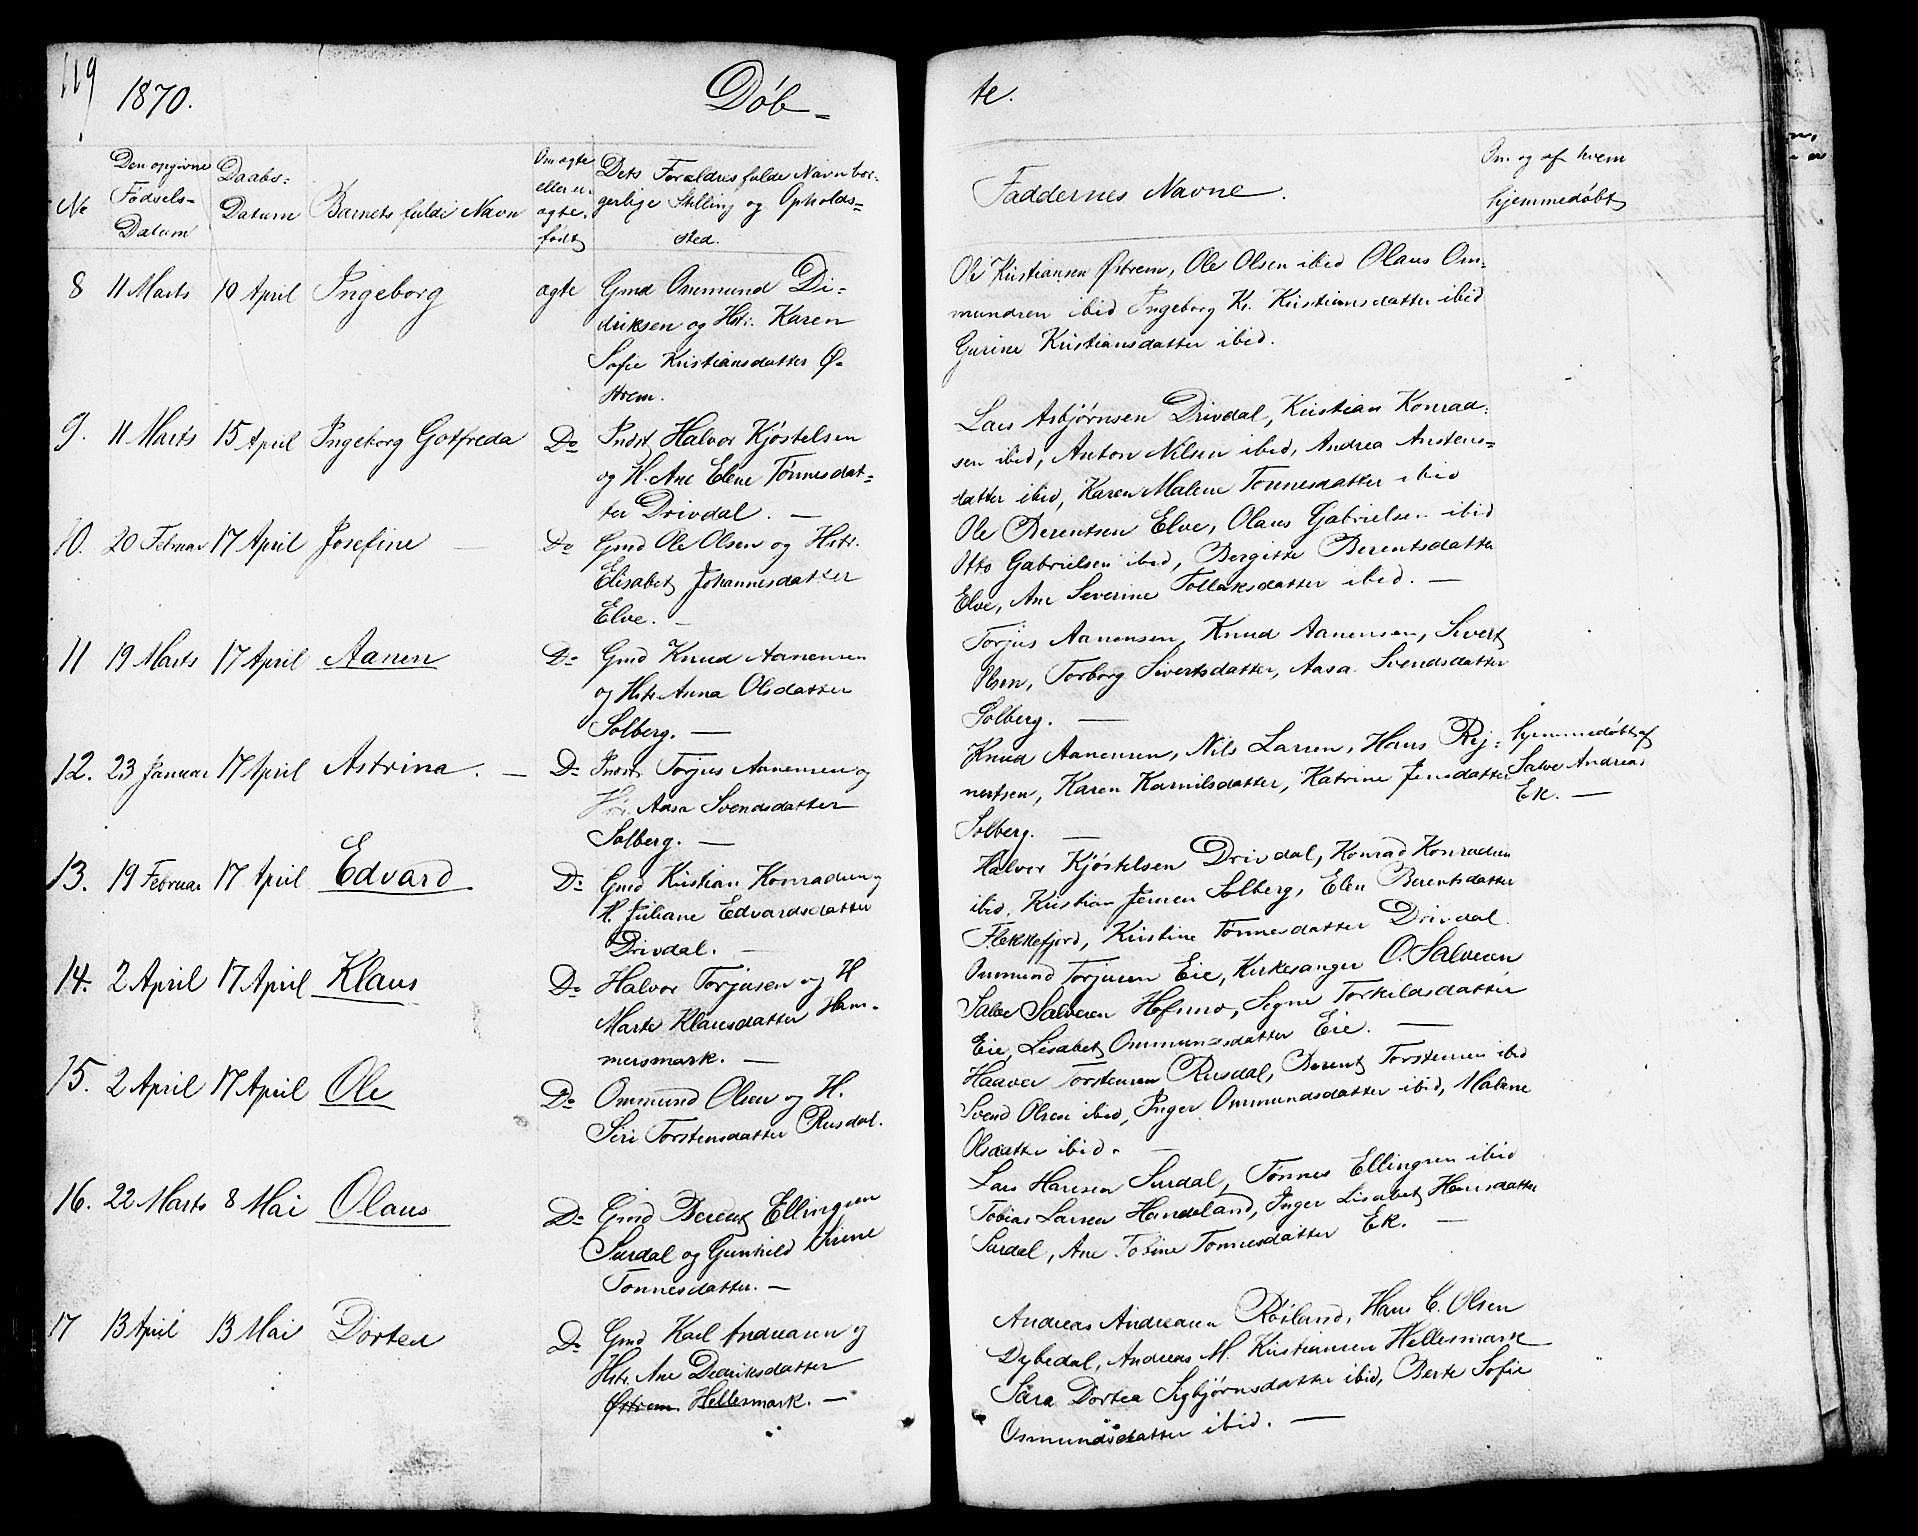 119
1870.
Døb-
te.
No
Den opgivne
Fødsels-
Datum
Daabs-
Datum
Barnets fulde Navn
Om ægte
eller u-
ægte
født
Dets Forældres fulde Navn bor-
gerlige Stilling og Opholds-
sted.
Faddernes Navne.
Om og af hvem
hjemmedøbt
8 11 Marts 10 April Ingeborg ægte
Gmd Ommund Di-
driksen og Hstr. Karen
Sofie Kristiansdatter Ø-
strem.
Ole Kristiansen Østrem, Ole Olsen ibid Olaus Om-
mundsen ibid Ingeborg K. Kristiansdatter ibid
Gurine Kristiansdatter ibid.
9. 11 Marts 15 April Ingeborg Gotfreda Do
Indst. Halvor Kjøstelsen
og H. Ane Elene Tønnesdat-
ter Drivdal. —
Lars Asbjørnsen Drivdal, Kristian Konrad-
sen ibid, Anton Nilsen ibid, Andrea Anstens-
datter ibid, Karen Malene Tønnesdatter ibid
10. 20 Februar 17 April Josefine — Do
Gmd Ole Olsen og Hstr.
Elisabet Johannesdatter
Elve. —
Ole Berentsen Elve, Olaus Gabrielsen ibid
Otto Gabrielsen ibid, Bergitte Berentsdatter
Elve, Ane Severine Tollaksdatter ibid. —
11 19 Marts 17 April Aanen Do
Gmd Knud Aanensen
og Hstr. Anna Olsdatter
Solberg. —
Torjus Aanensen, Knud Aanensen, Sivert
Olsen, Torborg Sivertsdatter, Aasa Svendsdatter
Solberg. —
12. 23 Januar 17 April Astrina. — Do
Indst. Torjus Aanensen og
Hstr. Aasa Svendsdatter
Solberg. —
Knud Aanensen, Nils Larsen, Hans Rej-
nertsen, Karen Kornilsdatter, Katrine Jensdatter
Solberg. —
hjemmedøbt af
Salve Andreas
Ek. —
13. 19 Februar 17 April Edvard Do
Gmd Kristian Konradsen og
H. Juliane Edvardsdatter
Drivdal. —
Halvor Kjøstelsen Drivdal, Konrad Konradsen
ibid, Kristian Jensen Solberg, Elen Berentsdatter
Flekkefjord, Kristine Tønnesdatter Drivdal.
14. 2 April 17 April Klaus Do
Halvor Torjusen og H
Marte Klausdatter Ham-
mersmark. —
Ommund Torjusen Eie, Kirkesanger O. Salvesen
Salve Salvesen Hofsmo, Signe Torkildsdatter
Eie, Lisabet Ommundsdatter Eie. —
15. 2 April 17 April Ole Do
Ommund Olsen og H.
Siri Torstensdatter Rusdal.
Haaver Torstensen Rusdal, Berent Torstensen ibid
Svend Olsen ibid, Inger Ommundsdatter ibid, Malene
Olsdatter ibid. —
16. 22 Marts 8 Mai Olaus Do
Gmd Berent Ellingsen
Surdal og Gunhild Sirene
Tonnesdatter. —
Lars Hansen Surdal, Tønnes Ellingsen ibid
Tobias Larsen Handeland, Inger Lisabet Hansdatter
Surdal, Ane Tobine Tonnesdatter Ek. —
17 13 April 13 Mai Dortea Do
Gmd Karl Andreasen og
Hstr. Ane Dedriksdatter
Østrem Hellesmark. —
Andreas Andreasen Røsland, Hans C. Olsen
Dybedal, Andreas M. Kristiansen Hellesmark
Sara Dortea Sigbjørnsdatter ibid, Berte Sofie
Osmundsdatter ibid. —